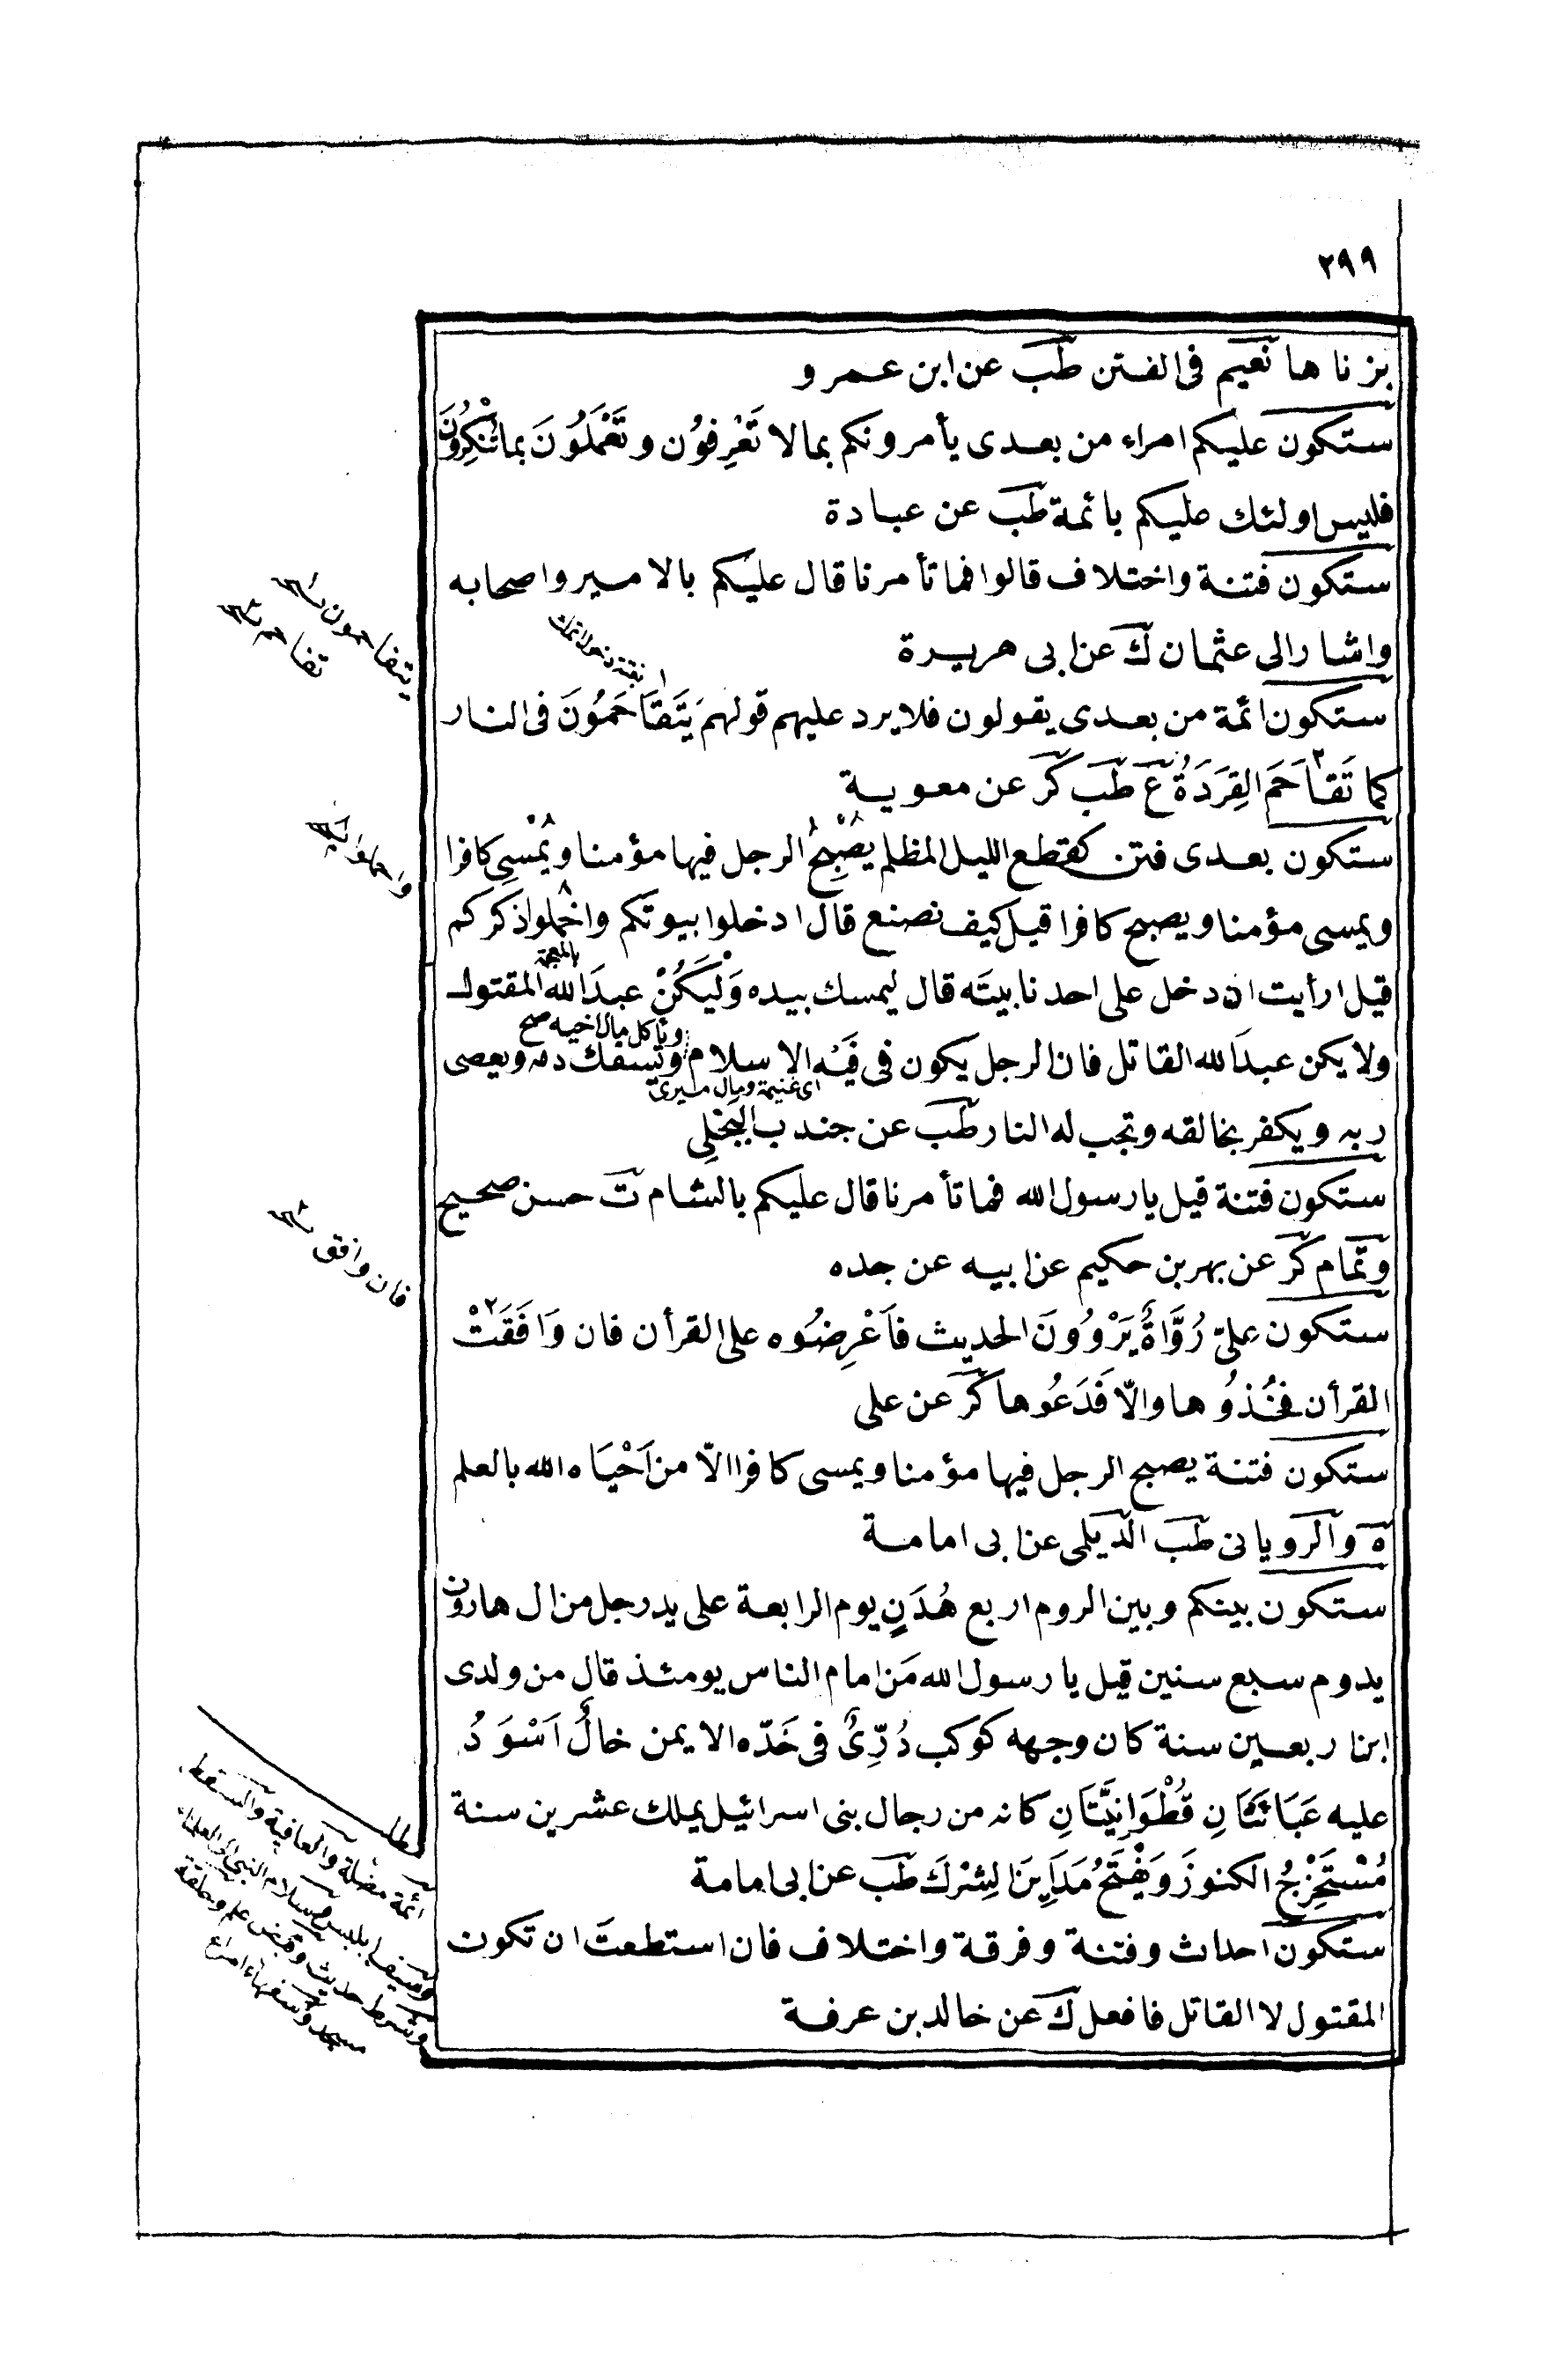 ٢٩٩
بزناها نعيم فى الفتن طب عن ابن عمرو
ستكون عليكم امراء من بعدى يأمرونكم بمالا تَعْرِفوُن وتَعْمَلوُنَ بما تُنْكِرُونَ
فليس اولئك عليكم بائمة طب عن عبادة
ستكون فتنة واختلاف قالوا فما تأمرنا قال عليكم بالامير واصحابه
واشار الى عثمان ك عن ابى هريرة
ستكون ائمة من بعدى يقولون فلا يرد عليهم قولهم يَتَقَاحَمُونَ فى النار
كما تَقَاحَمَ القِرَدَةُ ع طب كر عن معوية
ستكون بعدى فتن كقطع الليل المظلم يُصْبِحُ الرجل فيها مؤمنا ويُمْسِى كافرا
ويمسى مؤمنا ويصبح كافرا قيل كيف نصنع قال ادخلوا بيوتكم واخْملوا ذكركم
قيل ارأيت ان دخل على احدنا بيتَه قال ليمسك بيده وَلْيَكُنْ عبدَ الله المقتول
بالمعجمة
ولا يكن عبدَ الله القاتل فان الرجل يكون فى فَيْه الاسلام وتسفك دمه ويعصى
وتأكل مال اخيه صح
اى غنيمة ومال
ربه ويكفر بخالقه وتجب له النار طب عن جندب البَجَلِى
ستكون فتنة قيل يا رسول الله فما تأمرنا قال عليكم بالشام ت حسن صحيح
وتمام كر عن بهربن حكيم عن ابيه عن جده
ستكون علىّ رُوَّاةٌ يَرْوُونَ الحديث فاَعْرِضُوه على القرأن فان وَافَقَتْ
القرأن فخُذوُها والاّ فَدَعُوها كر عن على
ستكون فتنة يصبح الرجل فيها مؤمنا ويمسى كافرا الاّ من اَحْيَاه الله بالعلم
ه والرويانى طب الديلمى عن ابى امامة
ستكون بينكم وبين الروم اربع هُدَنٍ يوم الرابعة على يد رجل من ال هارون
يدوم سبع سنين قيل يا رسول الله مَن امام الناس يومئذ قال من ولدى
ابن اربعين سنة كان وجهه كوكب دُرِّىٌّ فى خَدّه الايمن خالٌ اَسْوَدُ
عليه عَبَائَتَانِ قُطْوَانِيَّتَانِ كانه من رجال بنى اسرائيل يملك عشرين سنة
مُسْتَخْرِجُ الكنوزَ وَيَفْتَحُ مَدَايِنَ الشِرْكَ طب عن ابى امامة
ستكون احداث وفتنة وفرقة واختلاف فان استطعتَ ان تكون
المقتول لا القاتل فافعل ك عن خالد بن عرفة
يتفاحمون
تفاحم
واحملوا
فان وافق
مطلب
ائمة مضلة والعافية والسقط
وشرط حديث وقبض علم وحلقة